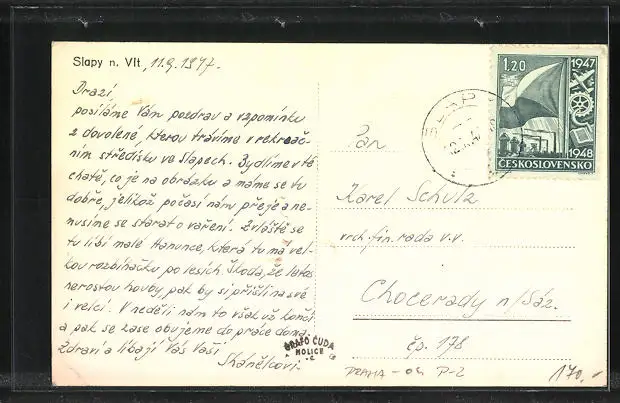 Slapy n. Vlt. 11.9.1947.
Drazí,
posíláme Vám pozdrav a vzpomínku
z dovolené, kterou trávíme v rekreač-
ním středísku ve Slapech. Bydlíme v té
chatě, co je na obrázku a máme se tu
dobře, jelikož počasí nám přeje a ne-
musíme se starat o vaření. Zvláště se
tu líbí malé Hanunce, která tu má vel-
kou rozbíhačku po lesích. Škoda, že letos
nerostou houby, pak by si přišli na své
i velcí. V neděli nám to však už končí
a pak se zase obujeme do práce doma.
Zdraví a líbají Vás Vaši
Skáněl covi.
1,20
1947
1948
ČESKOSLOVENSKO
Pan
Karel Schulz
vrch. fin. rada v.v.
Chocerady n/Sáz.
čp. 178
GRAFO ČUDA
HOLICE
PRAHA - 04 P-2
170,-